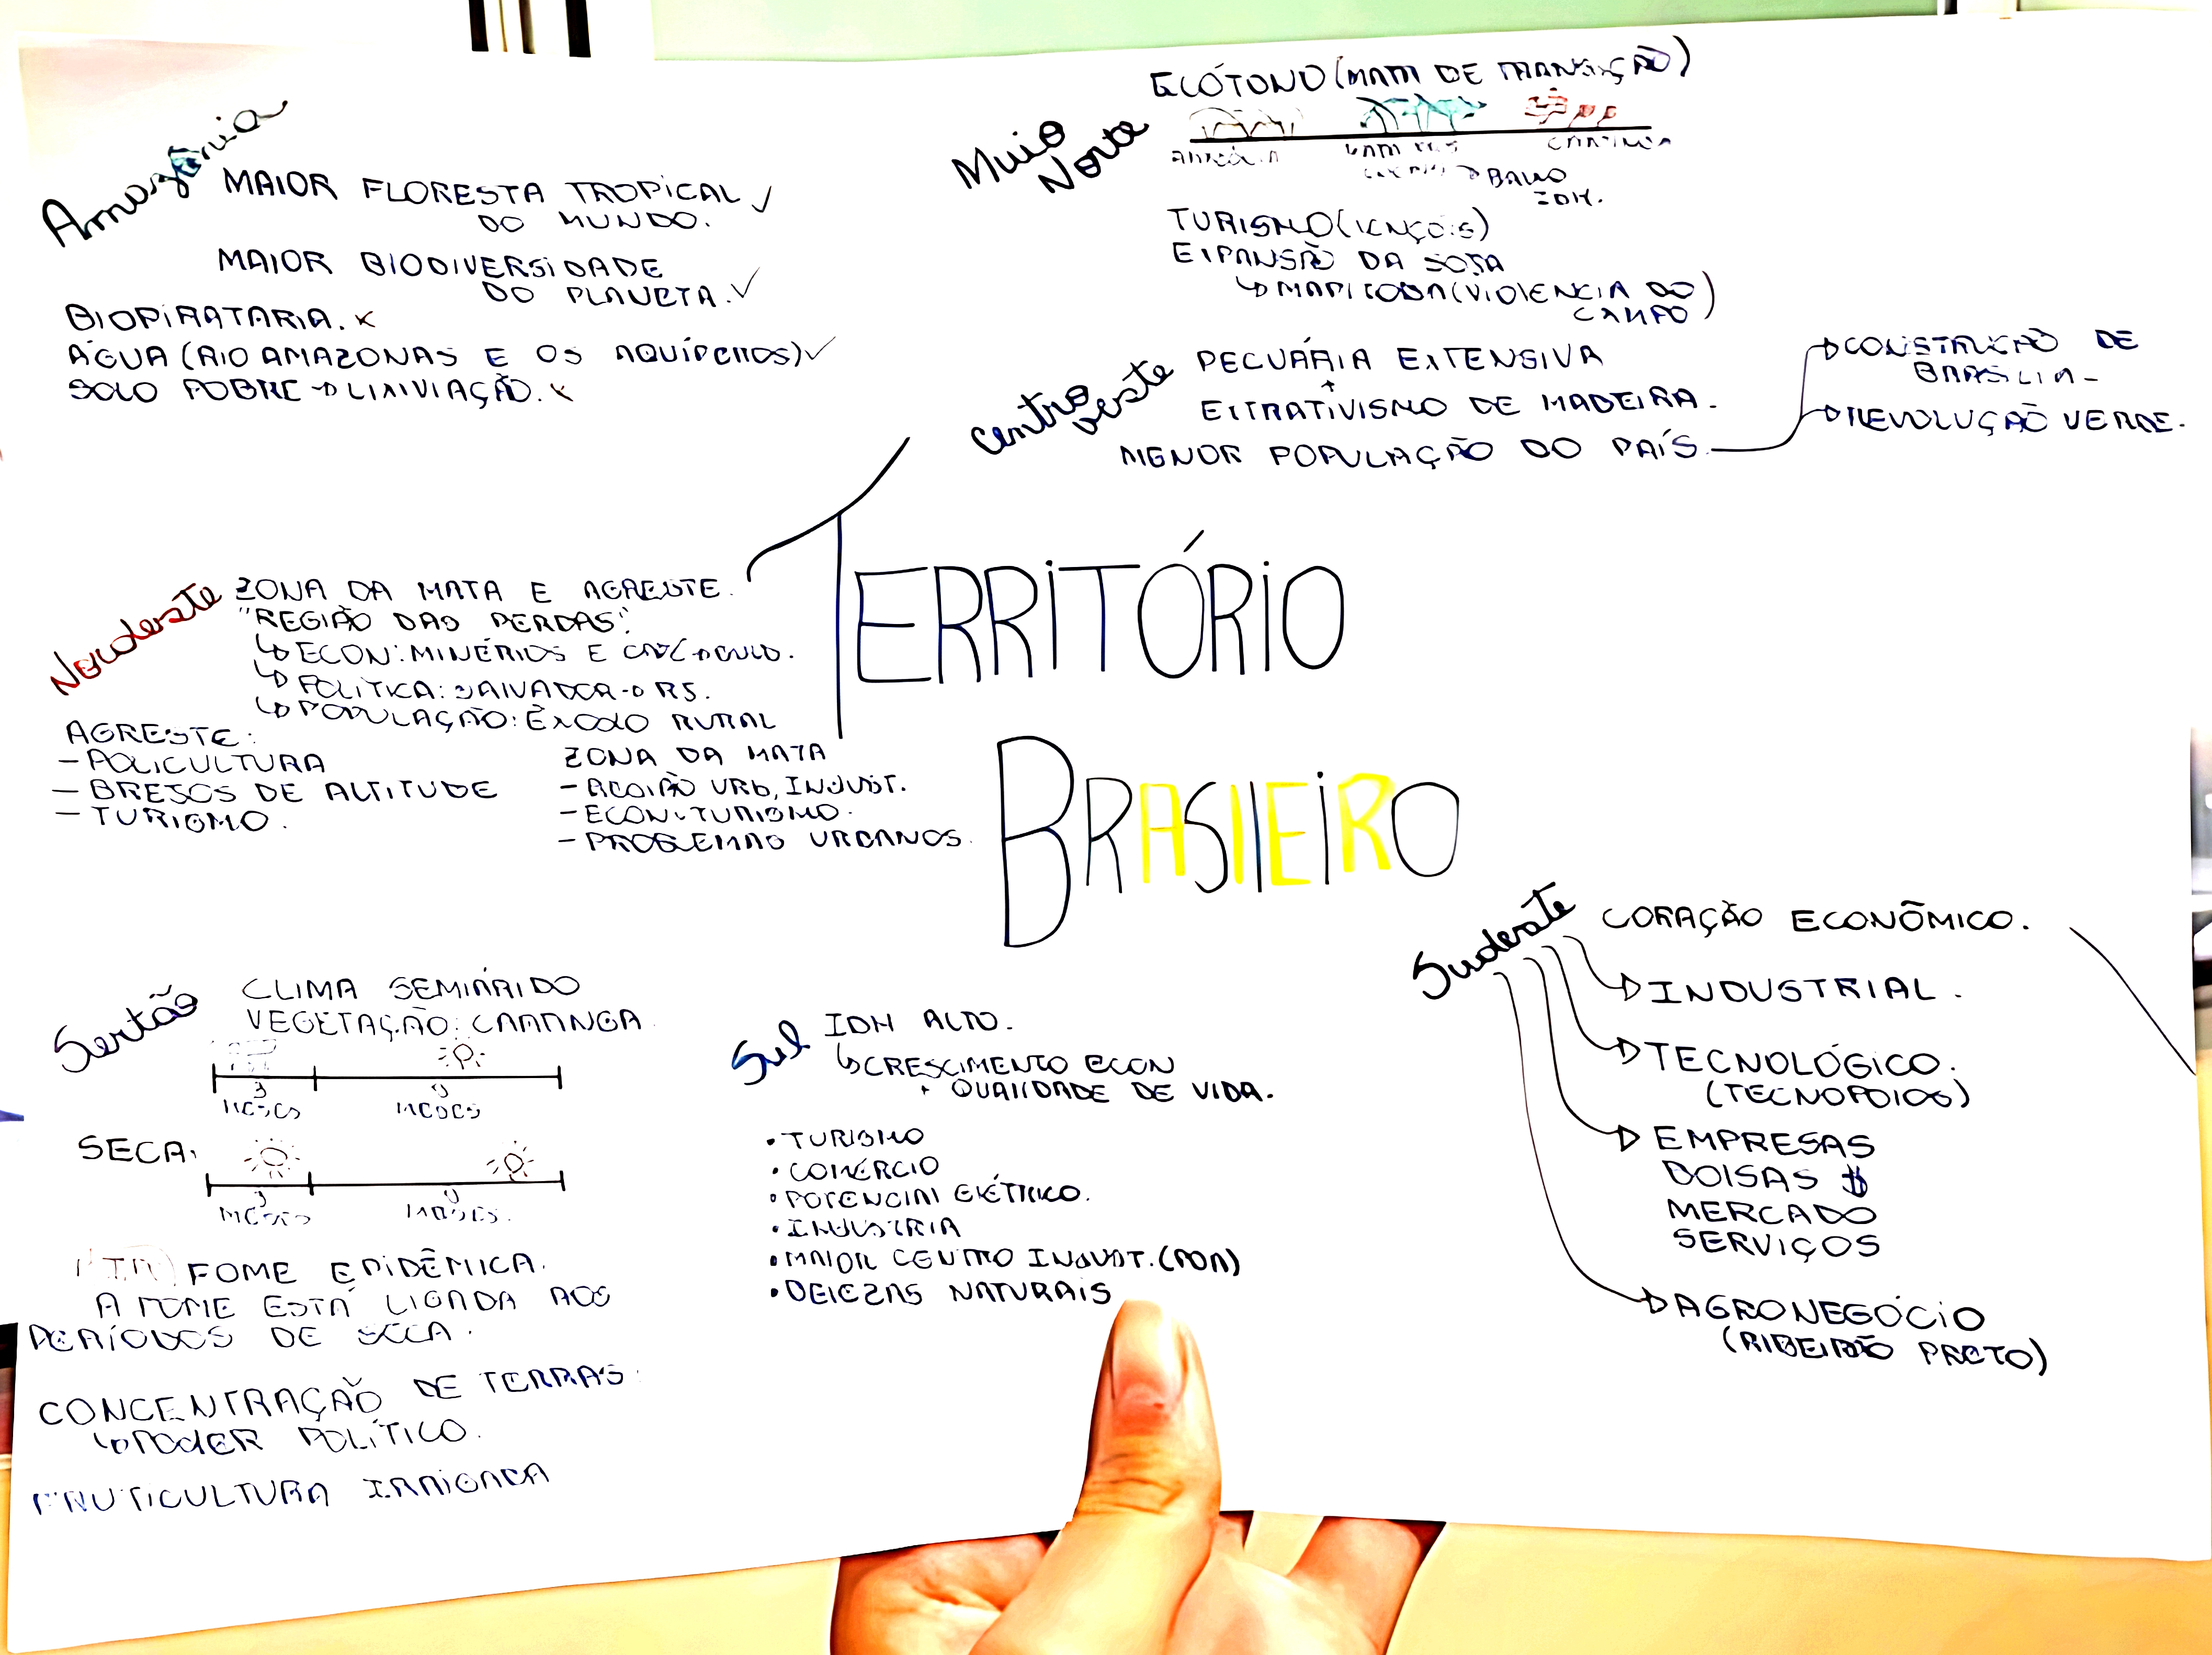 Amazônia
MAIOR FLORESTA TROPICAL ✓
DO MUNDO.
MAIOR BIODIVERSIDADE
DO PLANETA. ✓
BIOPIRATARIA. x
ÁGUA (RIO AMAZONAS E OS AQUÍFEROS) ✓
SOLO POBRE → LIXIVIAÇÃO. x
Meio
Norte
ECÓTONO (MATA DE TRANSIÇÃO)
CAATINGA
→ BAIXO
IDH.
TURISMO (LENÇÓIS)
EXPANSÃO DA SOJA
↳ MAPITOBA (VIOLENCIA DO
CAMPO)
Centro
Oeste
PECUÁRIA EXTENSIVA
+
EXTRATIVISMO DE MADEIRA.
MENOR POPULAÇÃO DO PAÍS.
→ CONSTRUÇÃO DE
BRASÍLIA-
→ REVOLUÇÃO VERDE.
TERRITÓRIO
BRASILEIRO
Nordeste
ZONA DA MATA E AGRESTE.
"REGIÃO DAS PERDAS".
↳ ECON: MINÉRIOS E
↳ POLÍTICA: SALVADOR → RJ.
↳ POPULAÇÃO: ÊXODO RURAL
AGRESTE:
- POLICULTURA
- BREJOS DE ALTITUDE
- TURISMO.
ZONA DA MATA
- REGIÃO URB, INDUST.
- ECON: TURISMO.
- PROBLEMAS URBANOS.
Sertão
CLIMA SEMIÁRIDO
VEGETAÇÃO: CAATINGA
3
MESES
9
MESES
SECA:
3
MESES
9
MESES.
FOME EPIDÊMICA.
A FOME ESTÁ LIGADA AOS
PERÍODOS DE SECA.
CONCENTRAÇÃO DE TERRAS
↳ PODER POLÍTICO.
FRUTICULTURA IRRIGADA
Sul
IDH ALTO.
↳ CRESCIMENTO ECON
+ QUALIDADE DE VIDA.
• TURISMO
• COMÉRCIO
• POTENCIAL ELÉTRICO.
• INDUSTRIA
• MAIOR CENTRO INDUST. (POA)
• BELEZAS NATURAIS
Sudeste
CORAÇÃO ECONÔMICO.
→ INDUSTRIAL.
→ TECNOLÓGICO.
(TECNOPOLOS)
→ EMPRESAS
BOLSAS $
MERCADO
SERVIÇOS
→ AGRONEGÓCIO
(RIBEIRÃO PRETO)